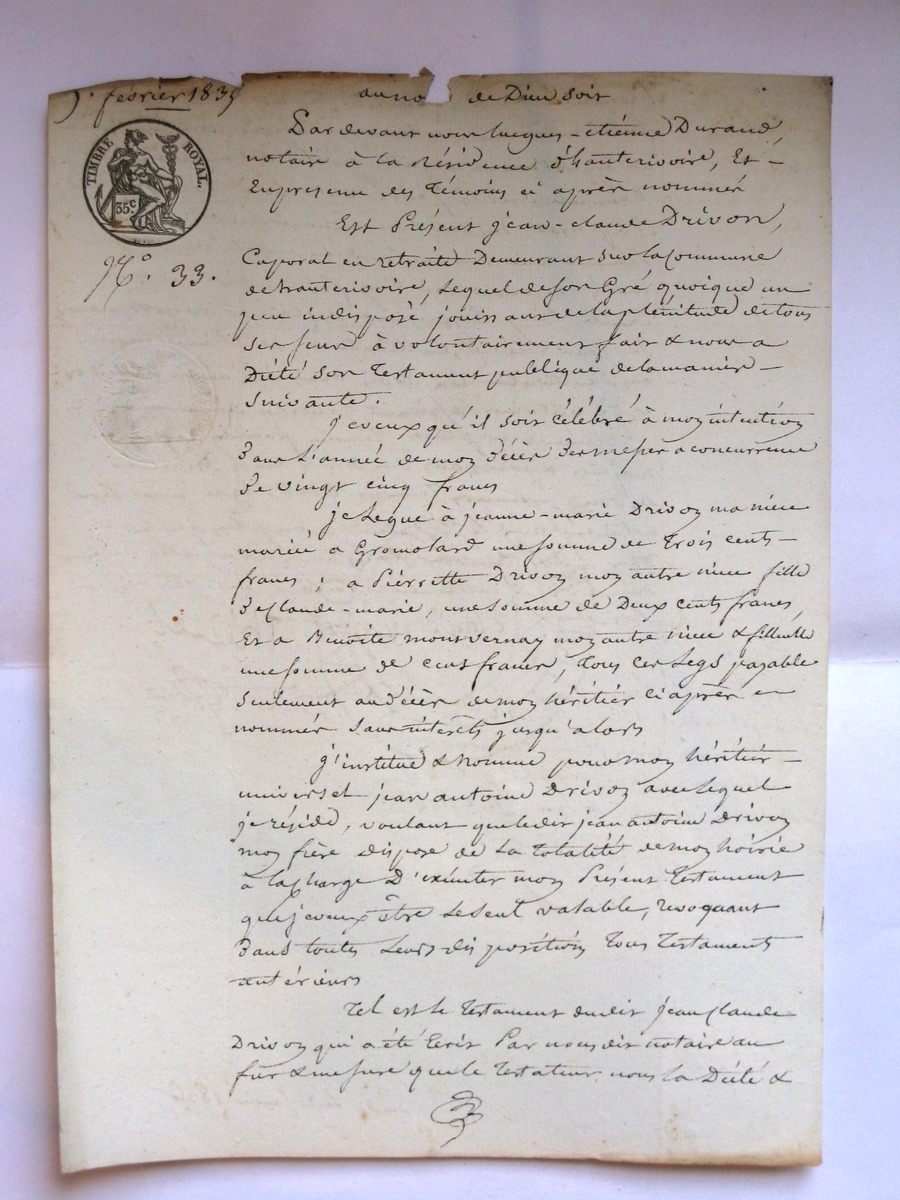 février 183
au no de Dieu soit
TIMBRE ROYAL.
35.c
N.o 33.
Pardevant nous hugues-etiénne Durand,
notaire à la résidence d'hauterivoire, Et -
En présence des Témoins ci après nommés
Est Présent jean-claude Drivon,
Caporal en retraite Demeurant sur la commune
de hauterivoire, Lequel de son Gré quoique un
peu indisposé jouissant de la plénitude de tous
ses sens à volontairement fait & nous a
Dicté son Testament publique de la maniere -
Suivante.
je veux qu'il soit célébré à mon intention
dans L'année de mon décès des messes a concurrence
de vingt cinq francs
je Legue à jeanne-marie Drivon ma niece
mariée a Gromolard une somme de Trois cents -
francs ; a Pierrette Drivon mon autre niece fille
de Claude-marie, une somme de Deux cents francs,
Et a Benoite montvernay mon autre niece & filleulle
une somme de cent francs, Tous ces Legs payable
Seulement au décès de mon héritier ci après -
nommés sans intérêts jusqu'alors
j'institue & nomme pour mon héritier -
universel jean antoine Drivon avec Lequel
je réside, voulant que ledit jean antoine Drivon
mon frère dispose de La totalité de mon hoirie
à la charge D'exécuter mon Présent Testament
que je veux être Le seul valable, revoquant
dans toutes Leurs dispositions Tous Testaments
antérieurs
Tel est le Testament dudit jean Claude
Drivon qui a été Ecrit Par nous dit notaire au
fur & mesure que le Testateur nous la Dicté &